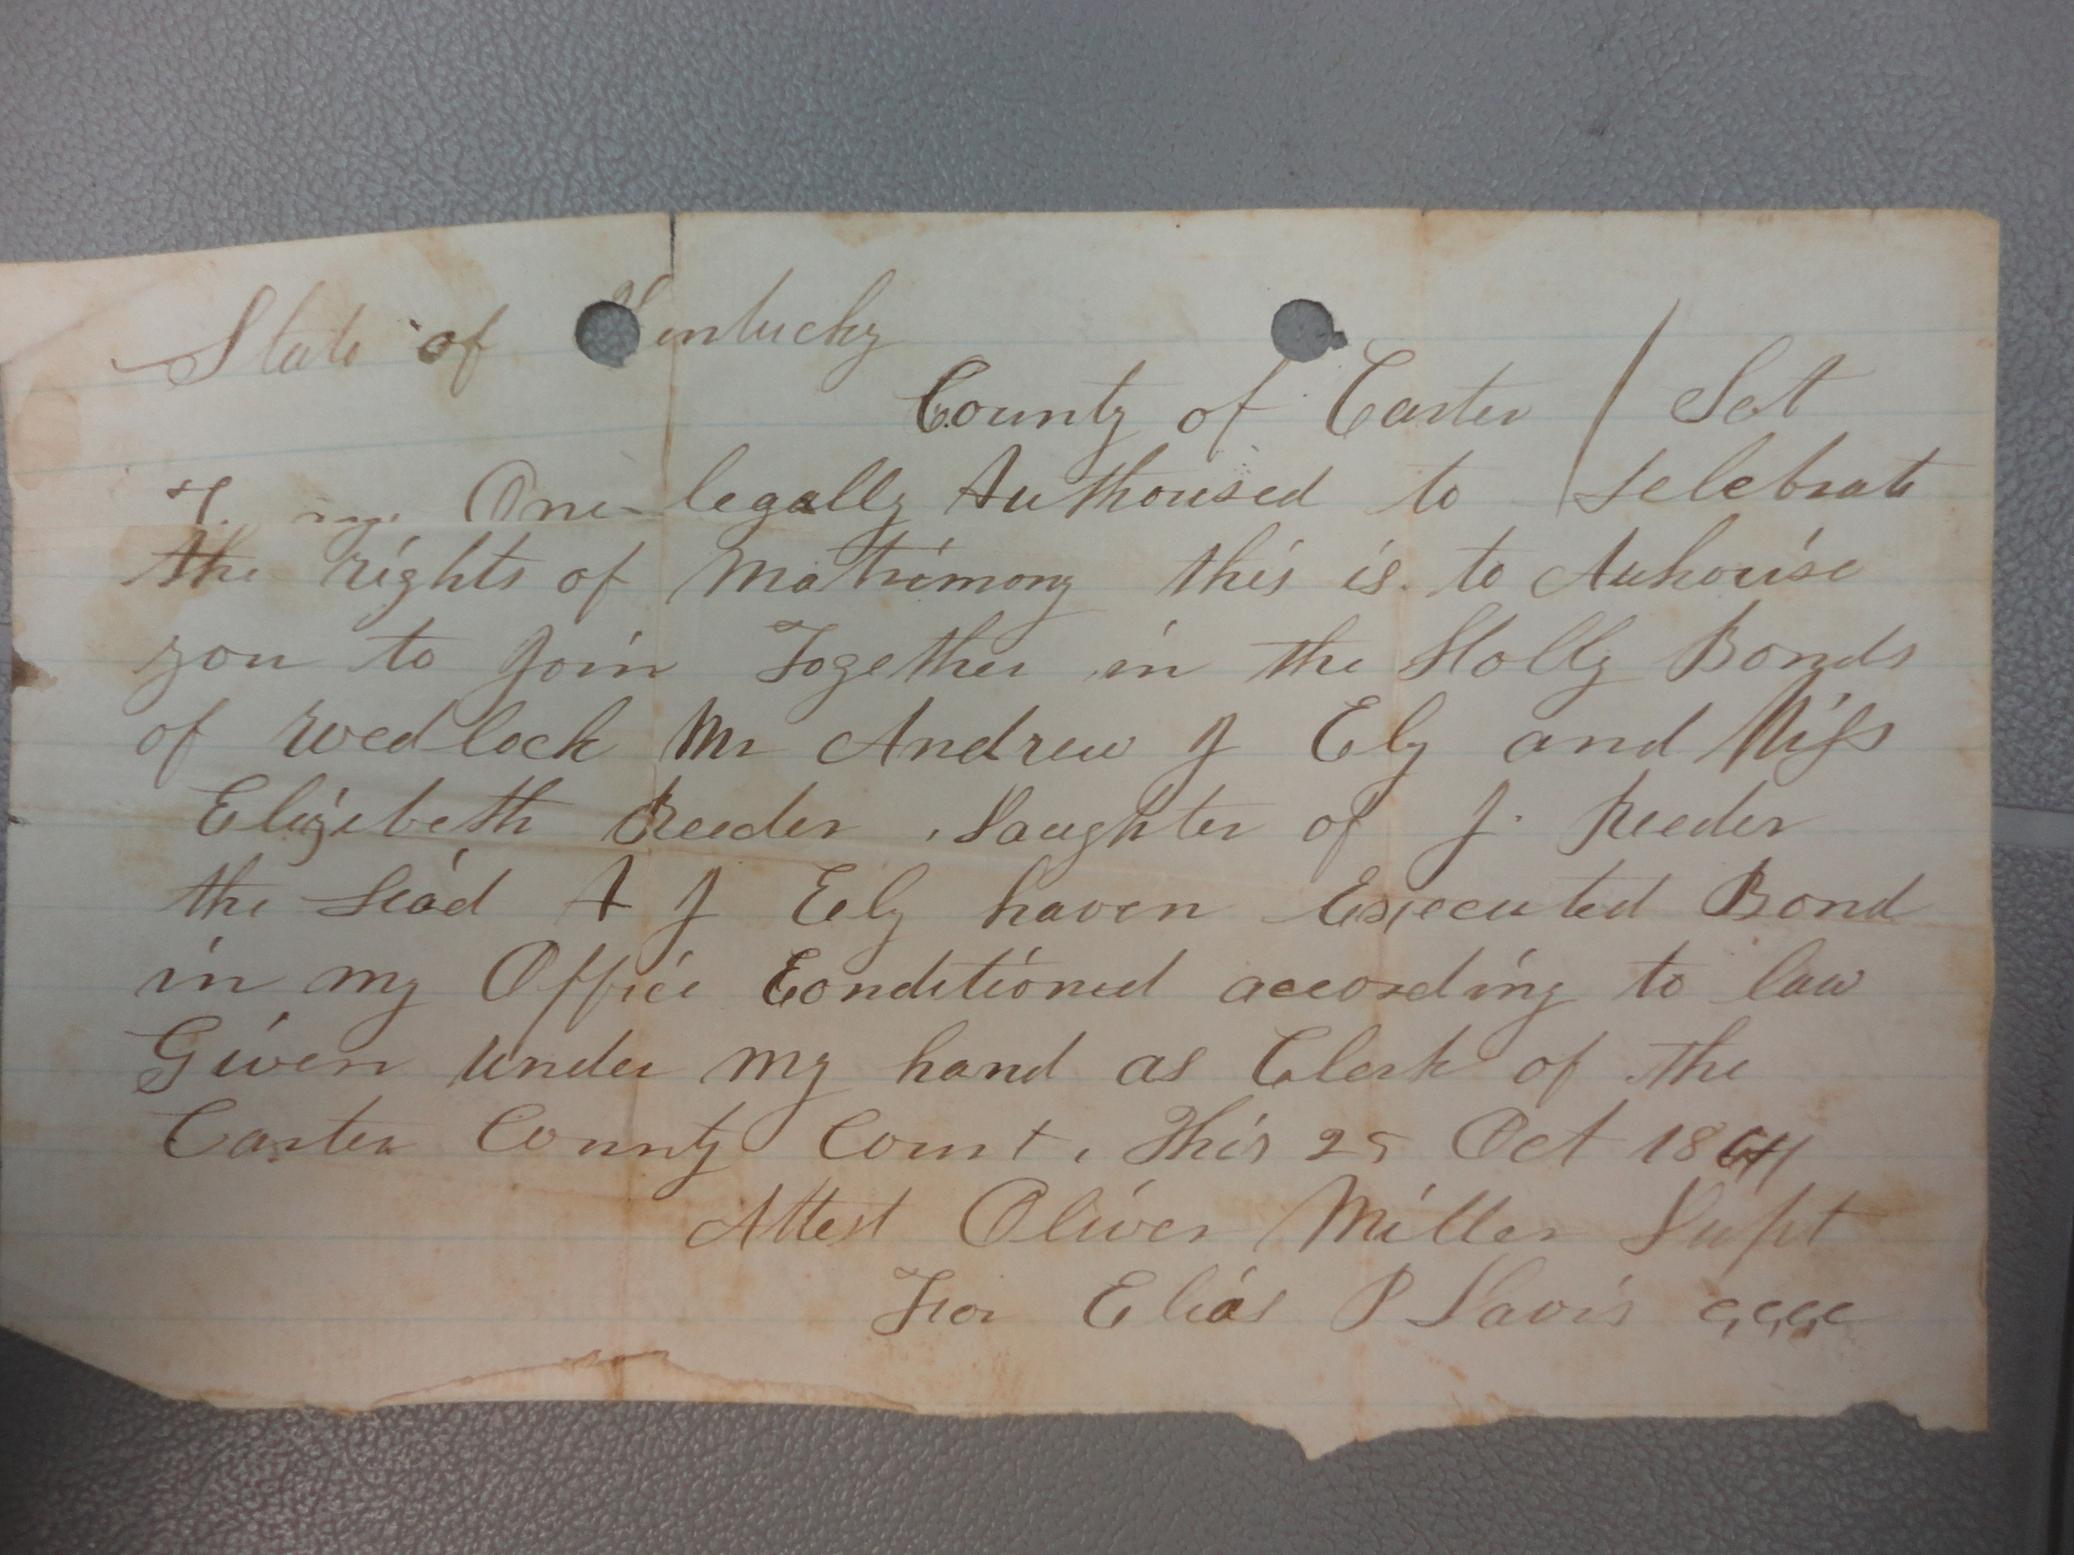 State of Kentucky
County of Carter ( Sct
To any One legally Authorised to Selebrate
the rights of Matrimony this is to Auhorise
you to Join Together in the Holly Bonds
of Wedlock Mr Andrew J Ely and Miss
Elizibeth Reeder Daughter of J. Reeder
the Siad A J Eely haven Executed Bond
in my Office Conditioned according to law
Given under my hand as Clerk of the
Carter County Court, This 25 Oct 1864
Attest Oliver Miller Dupt
For Elias P Davis C,C,C,C